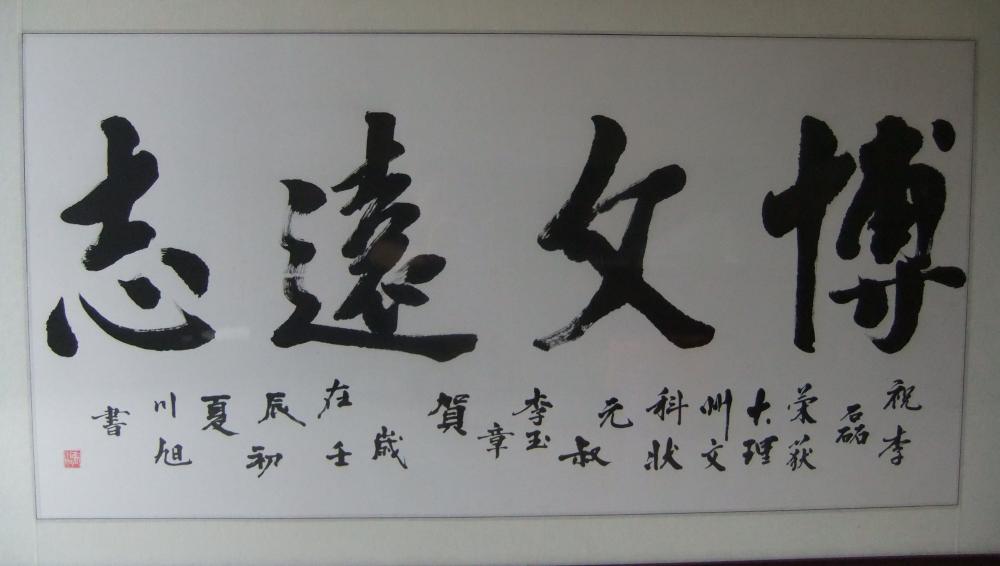 博文遠志
祝李
磊
荣获
大理
州文
科状
元
叔
李玉
章
賀
歲
在壬
辰初
夏
川旭
書